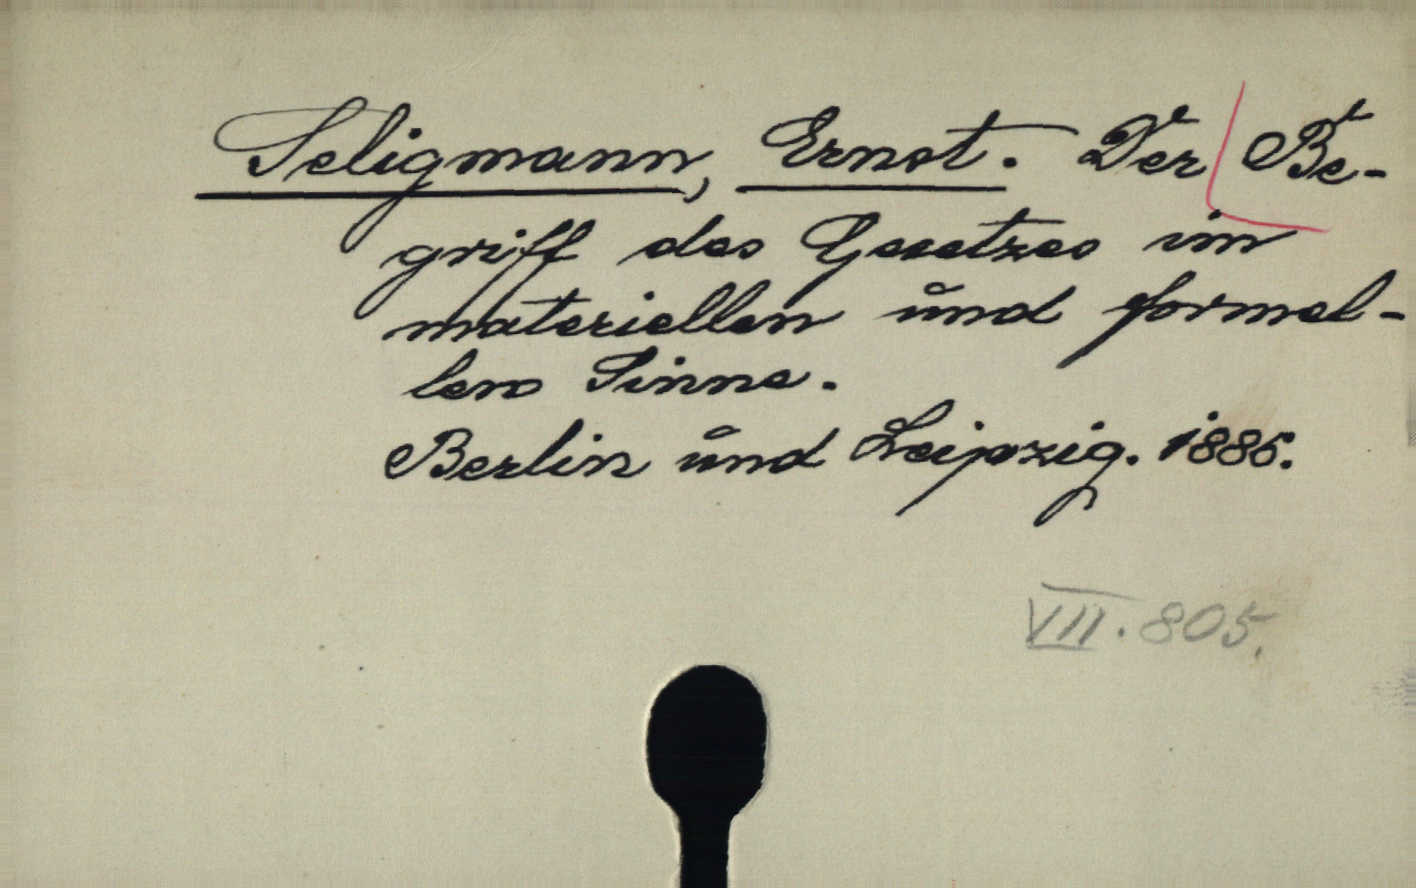 Seligmann, Ernst. Der Be-
griff des Gesetzes im
materiellen und formel-
len Sinne.
Berlin und Leipzig. 1886.
VII. 805.